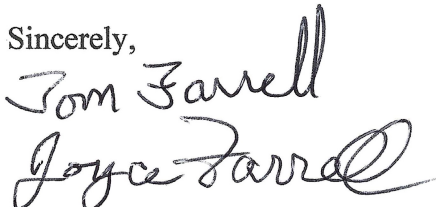 Sincerely,
Tom Farrell
Joyce Farrell